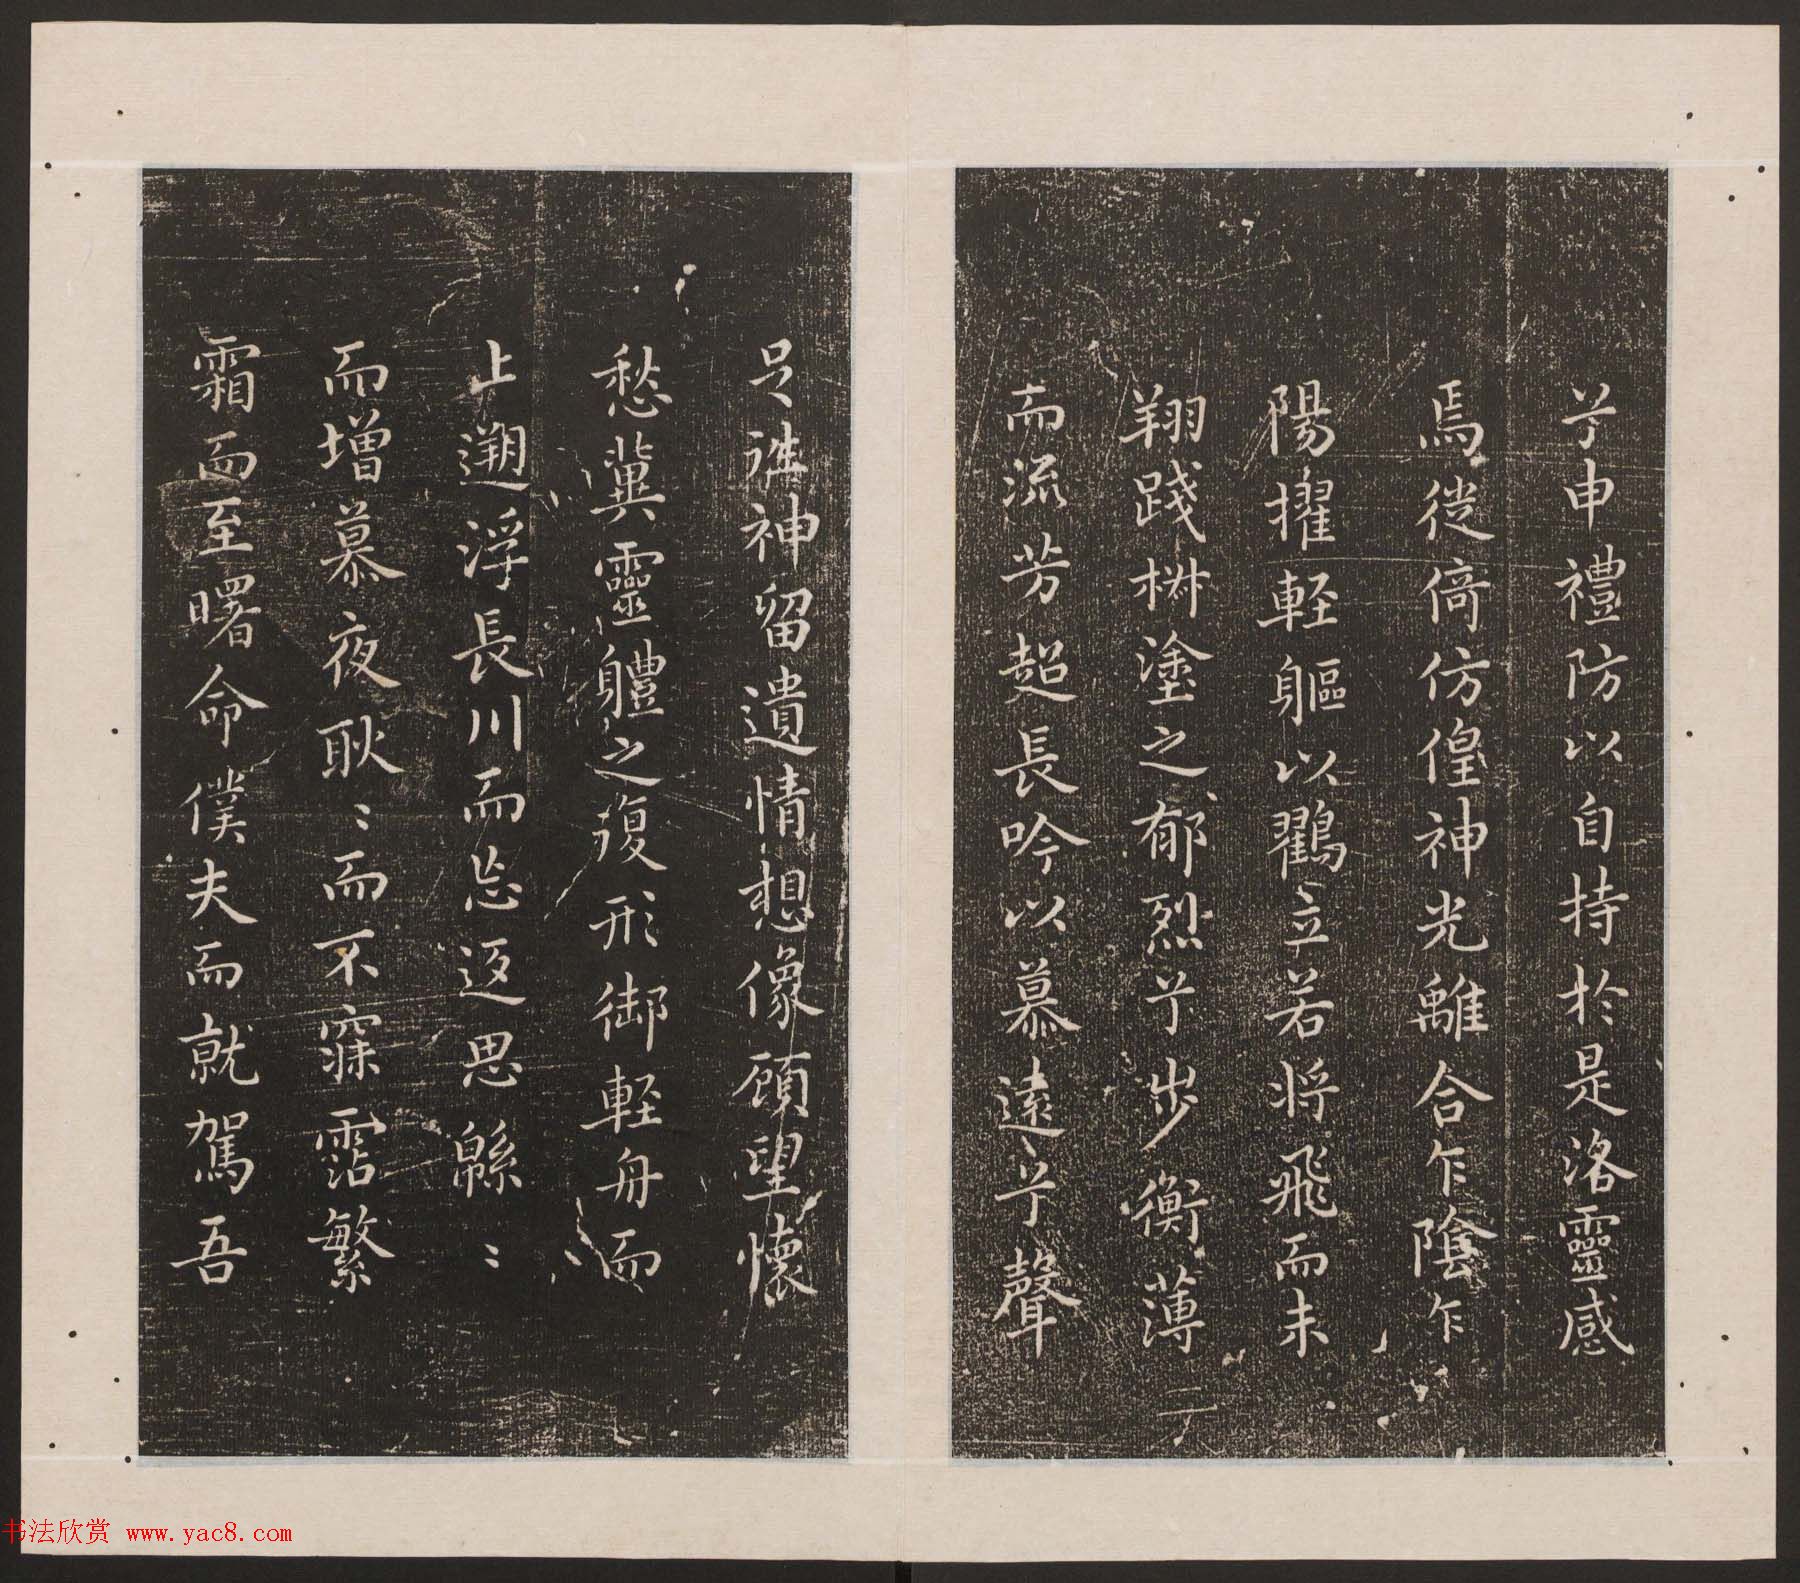 兮申禮防以自持於是洛靈感
焉徙倚仿偟神光離合乍陰乍
陽擢輕軀以鸛立若将飛而未
翔踐椒塗之郁烈兮步衡薄
而流芳超長吟以慕遠兮聲
足往神留遺情想像顧望懷
愁冀靈軆之復形御輕舟而
上遡浮長川而忘返思緜〻
而增慕夜耿〻而不寐霑繁
霜而至曙命僕夫而就駕吾
书法欣赏 www.yac8.com